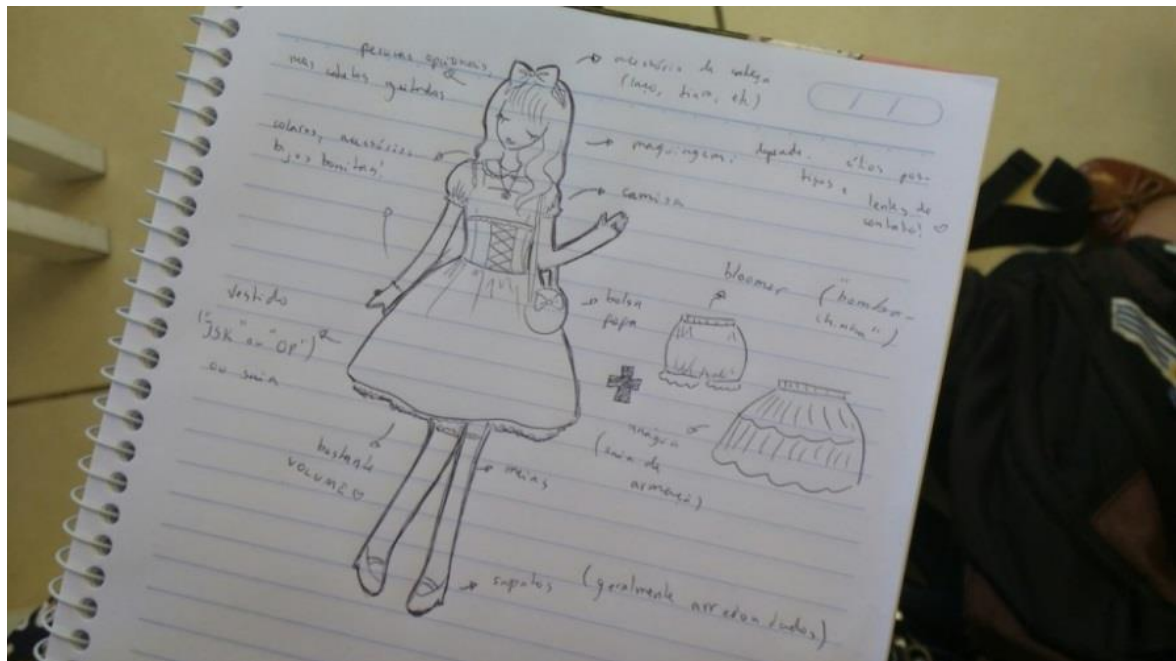 perucas opcionais,
mas cabelos ajeitados
acessório de cabeça
(laço, tiara, etc)
colares, acessórios,
bijus bonitas!
maquiagem, depende. cílios pos-
tiços e
lentes de
contato! ♡
camisa
vestido
("JSK" ou "OP")
ou saia
bolsa
fofa
bloomer ("bomba-
chinha")
+
anágua
(saia de
armação)
bastante
VOLUME ♡
meias
sapatos (geralmente arredondados)